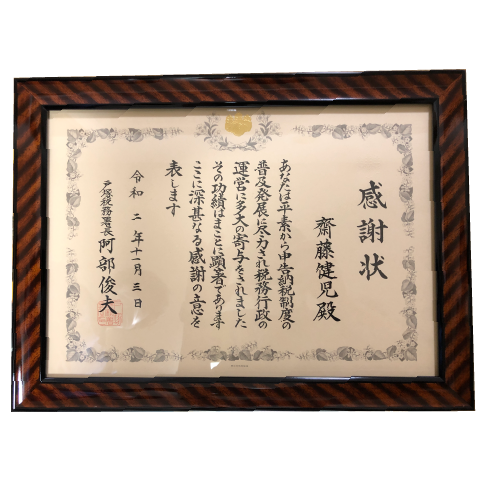 感謝状
齋藤健児殿
あなたは平素から申告納税制度の
普及発展に尽力され税務行政の
運営に多大の寄与をされました
その功績はまことに顕著であります
ここに深甚なる感謝の意を
表します
令和二年十一月三日
戸塚税務署長 阿部俊夫